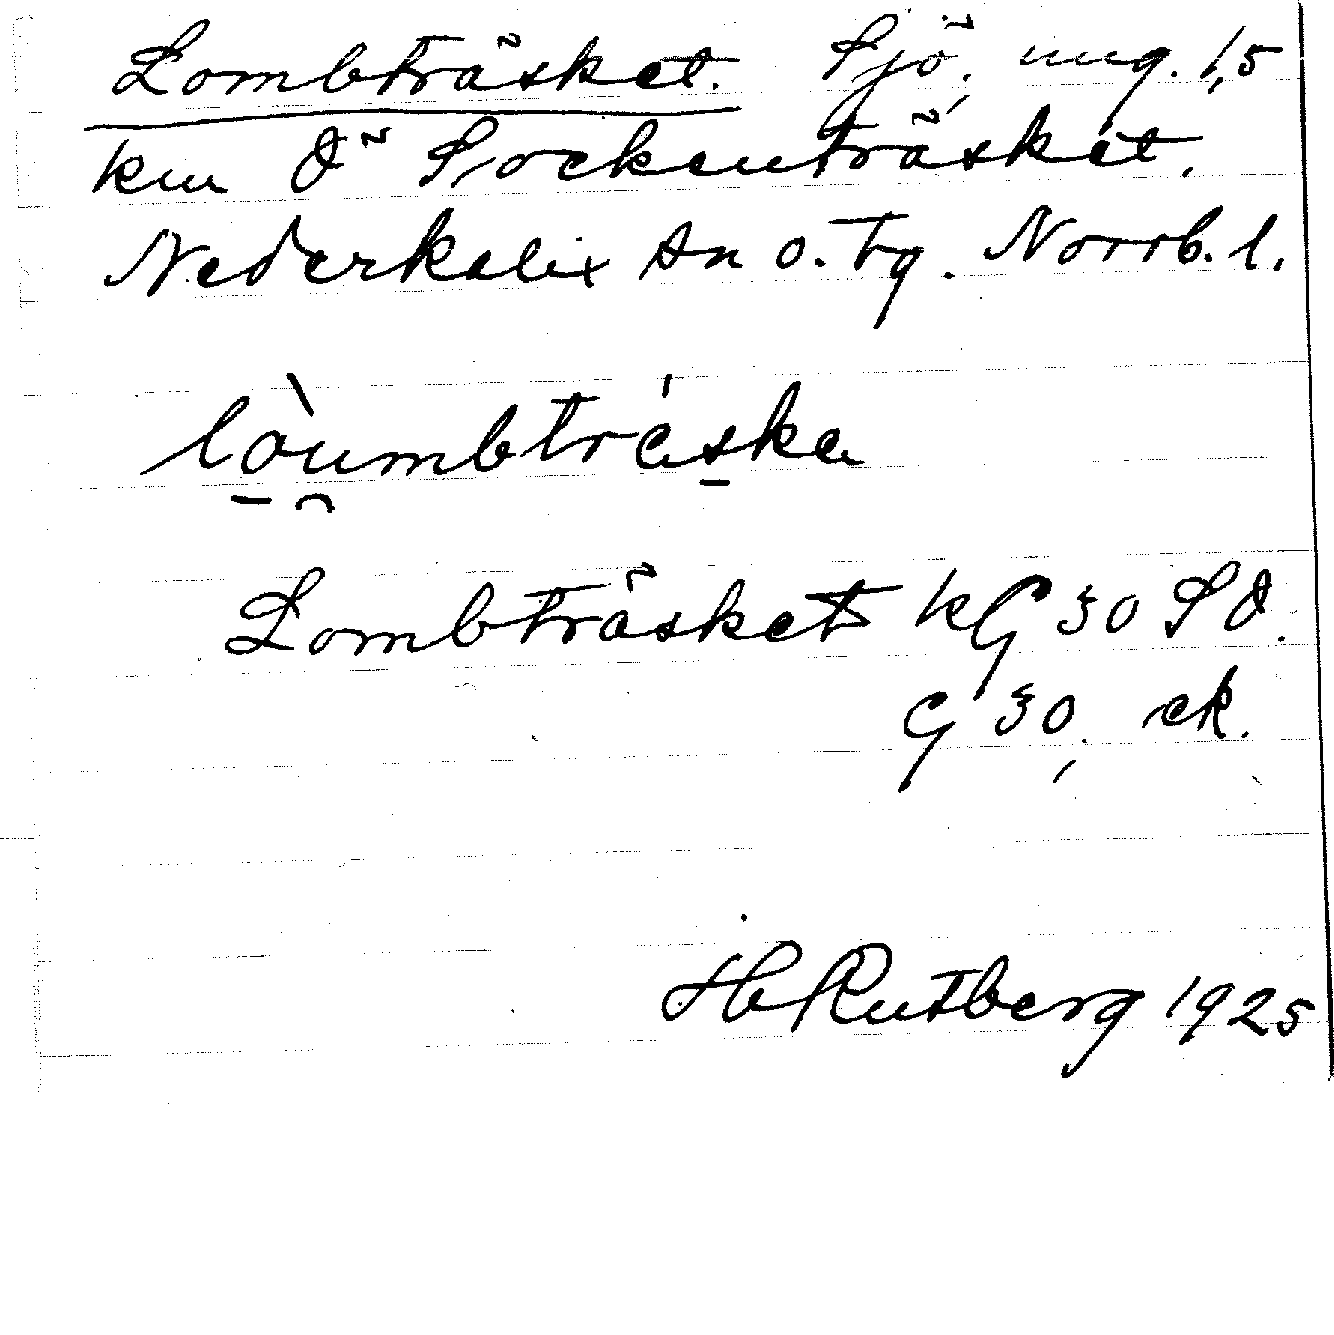 Lombträsket. Sjö, ung. 1,5
km Ö Sockenträsket,
Nederkalix sn o. tg. Norrb. l.
lòumbtráska
Lombträsket kG 30 SO.
G 30, ek.
H Rutberg 1925